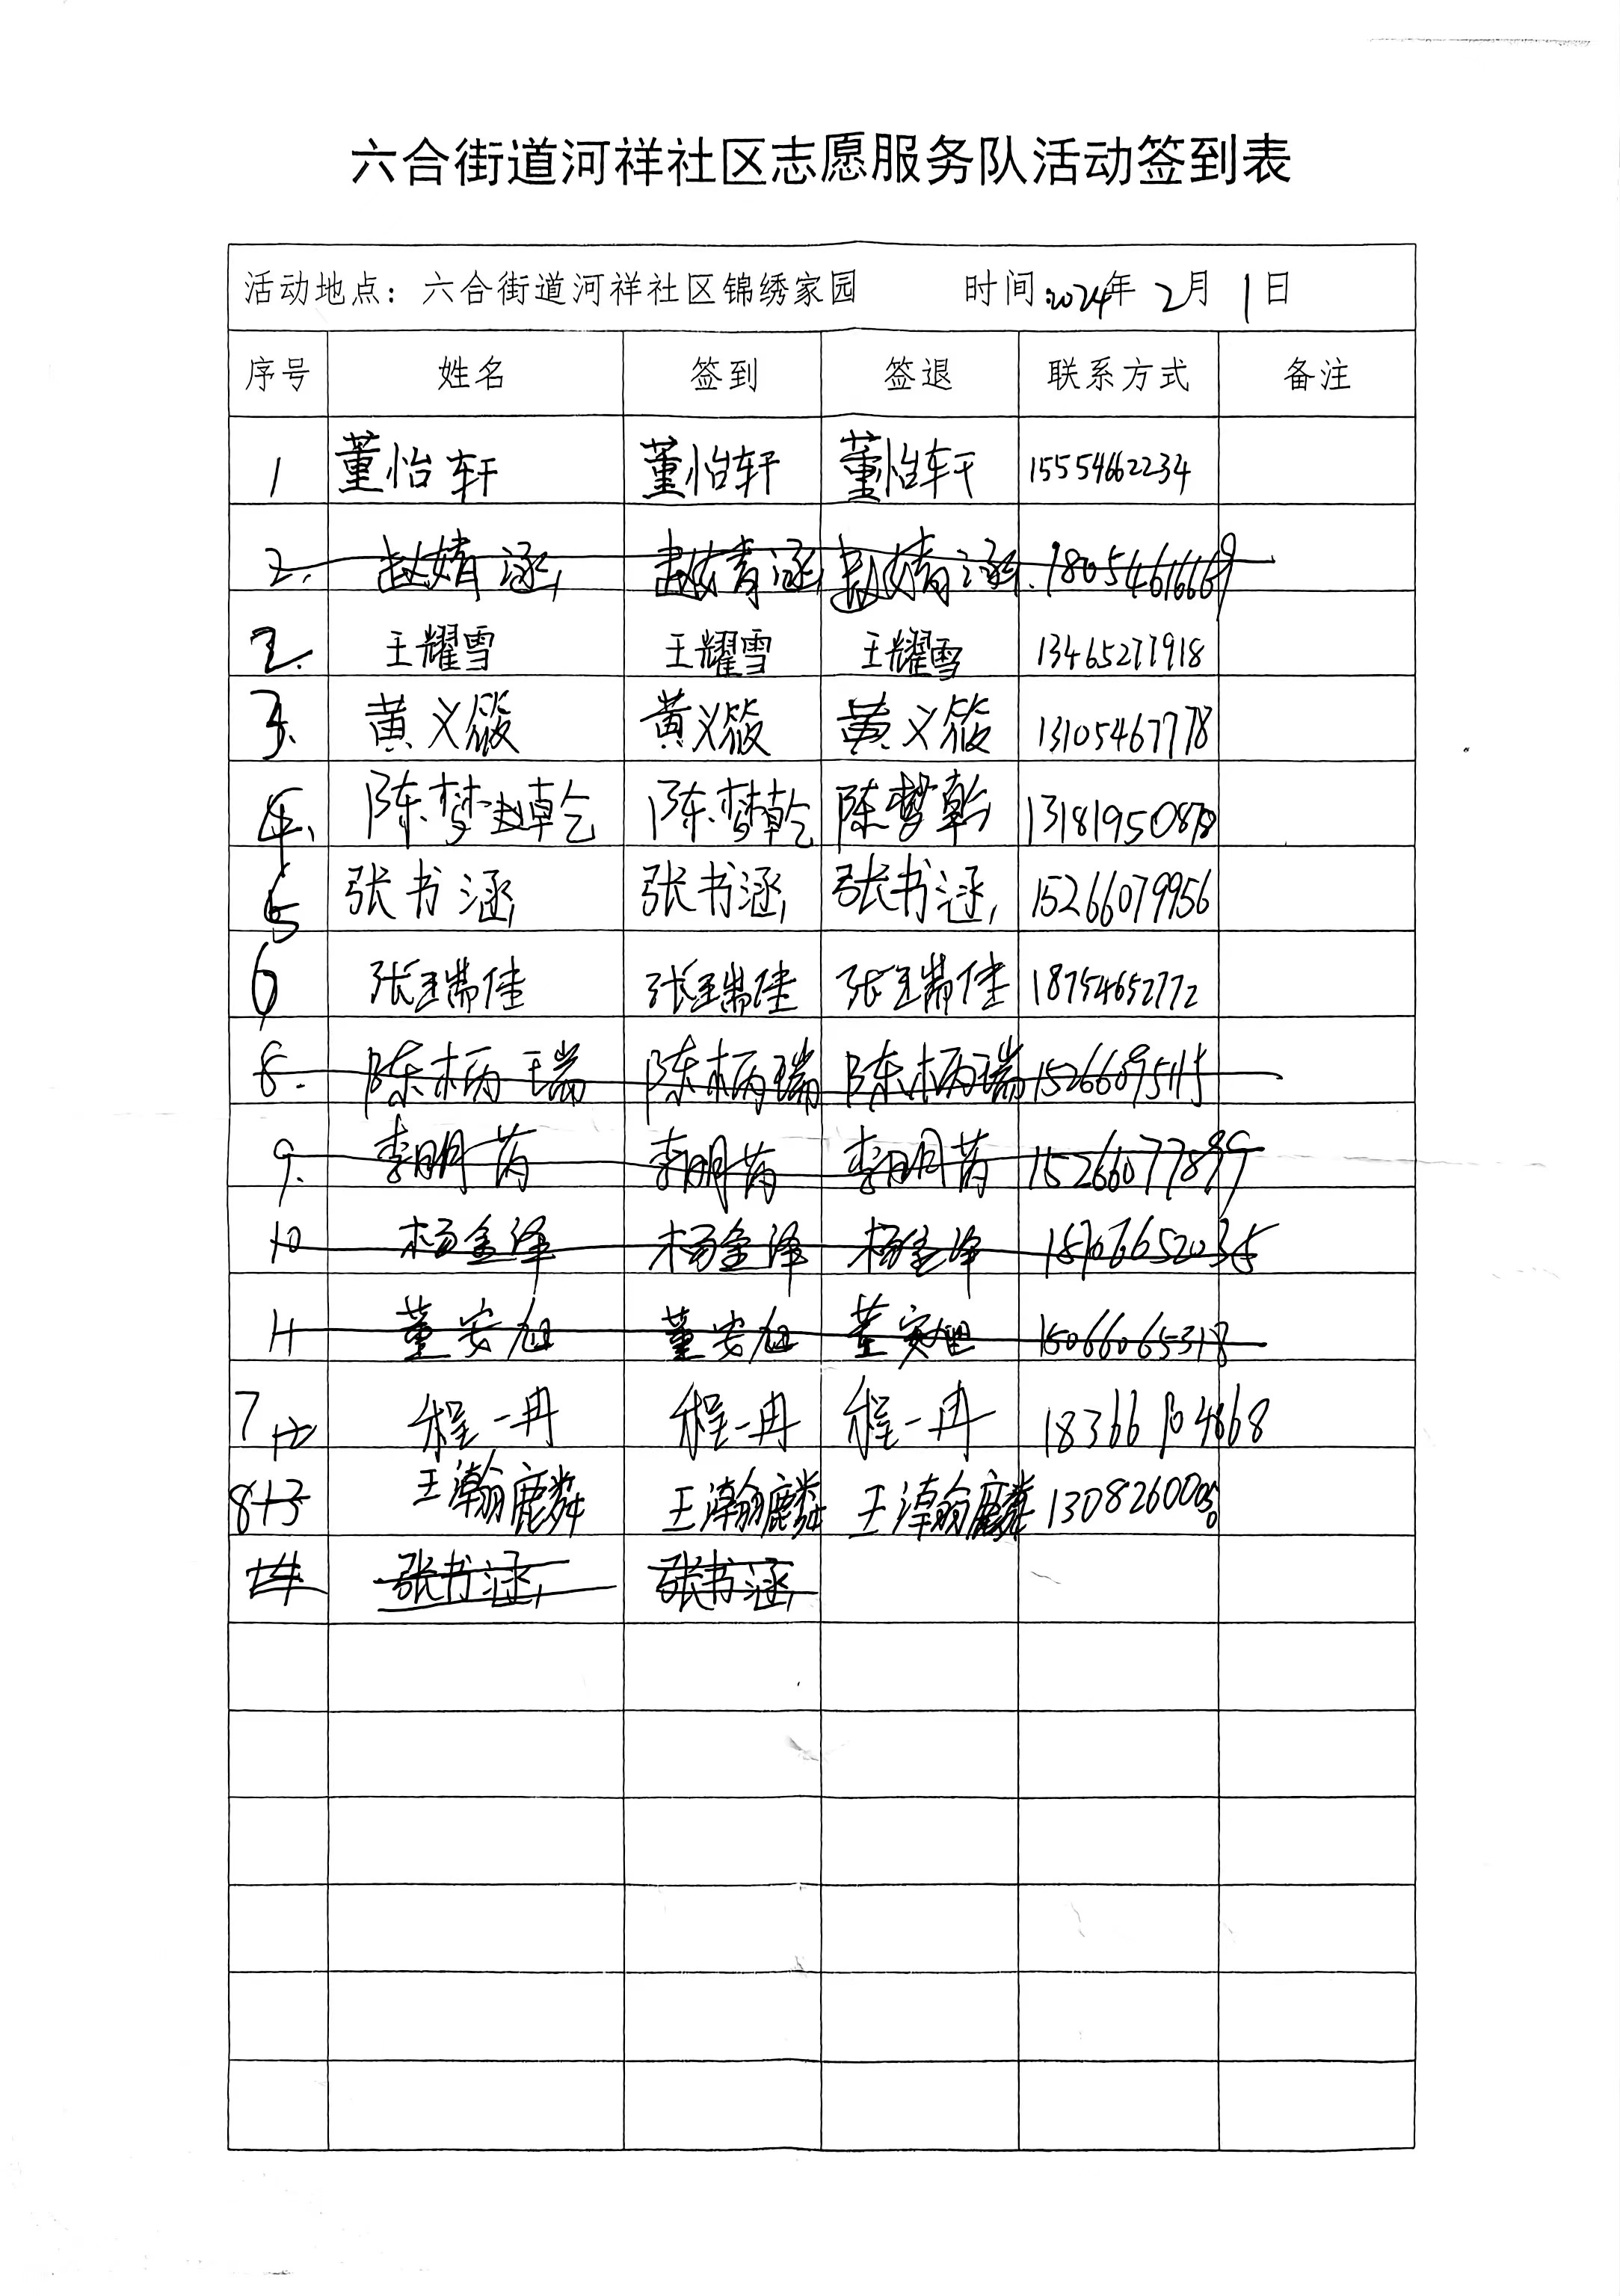 六合街道河祥社区志愿服务队活动签到表
活动地点：六合街道河祥社区锦绣家园 时间:2024年 2月 1日
序号 姓名 签到 签退 联系方式 备注
1 董怡轩 董怡轩 董怡轩 15554662234
2. 赵婧涵 赵婧涵 赵婧涵 18054616669
2. 王耀雪 王耀雪 王耀雪 13465277918
3. 黄义筱 黄义筱 黄义筱 13105467778
4. 陈梦乾 陈梦乾 陈梦乾
5 张书涵 张书涵 张书涵 15266079956
6 张瑞佳 张瑞佳 张瑞佳 18754652772
8. 陈柄瑞 陈柄瑞 陈柄瑞
9. 李明芮 李明芮 李明芮 15266077899
10 杨金泽 杨金泽 杨金泽
11 董安旭 董安旭 董安旭 15066065318
7 12 程一冉 程一冉 程一冉
8 13 王瀚麟 王瀚麟 王瀚麟
14 张书涵 张书涵